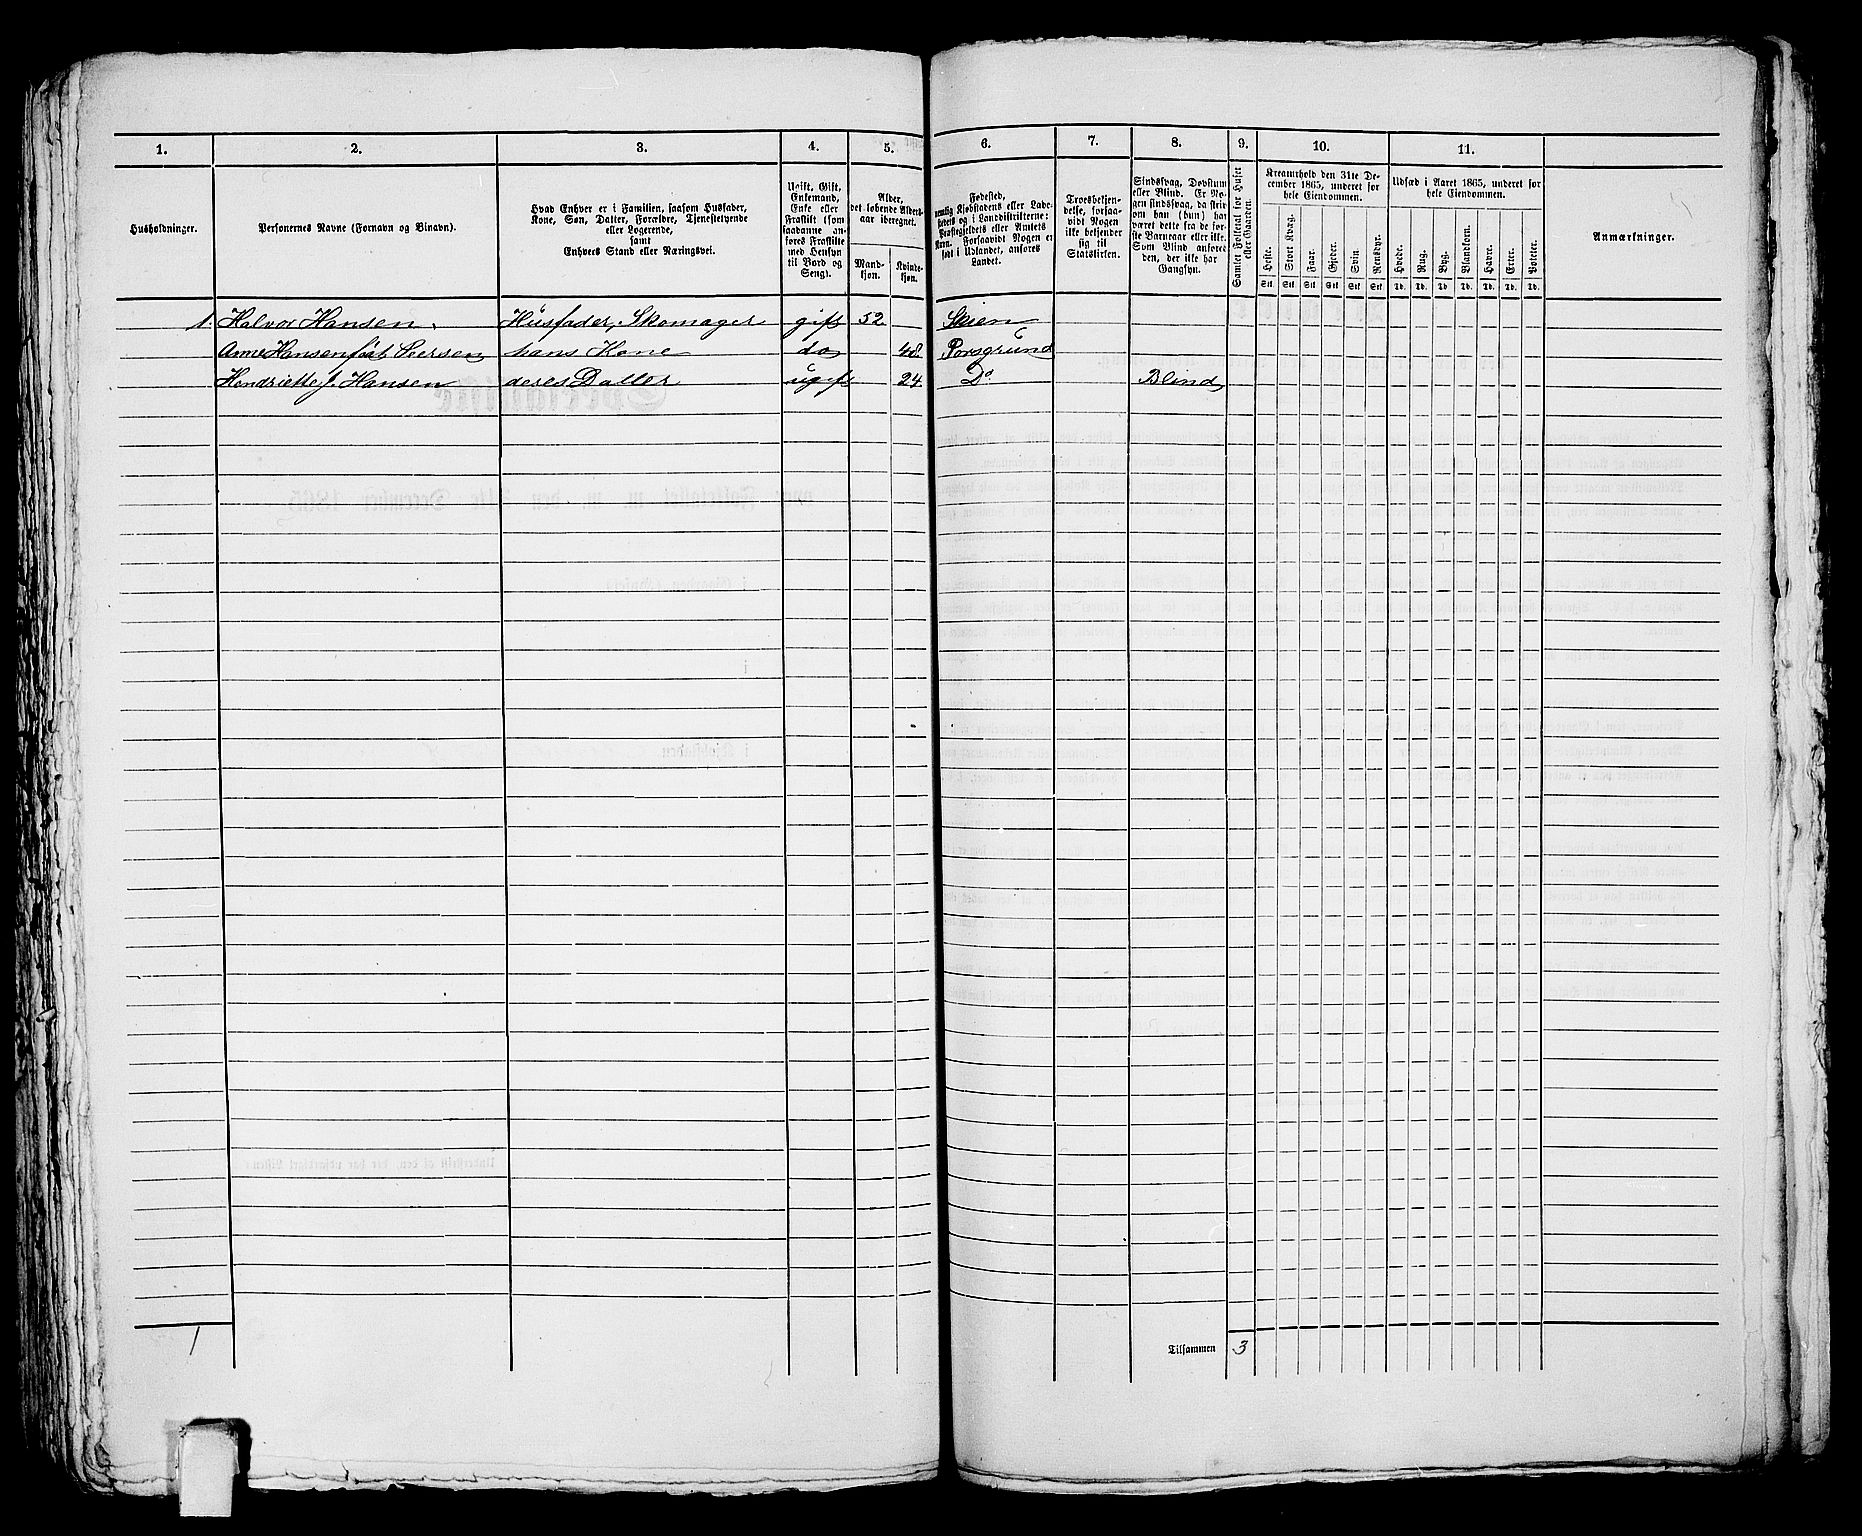 1. 2. 3. 4. 5. 6. 7. 8. 9. 10. 11.
Husholdninger.
Personernes Navne (Fornavn og Binavn).
Hvad Enhver er i Familien, saasom Husfader,
Kone, Søn, Datter, Forældre, Tjenestetyende
eller Logerende,
samt
Enhvers Stand eller Næringsvei.
Ugift, Gift,
Enkemand,
Enke eller
Fraskilt (som
saadanne an-
føres Fraskilte
med Hensyn
til Bord og
Seng).
Alder,
det løbende Alders-
aar iberegnet.
Mand-
kjøn.
Kvinde-
kjøn.
Fødested,
nemlig Kjøbstadens eller Lade-
stedets og i Landdistrikterne:
Præstegjeldets eller Amtets
Navn. Forsaavidt Nogen er
født i Udlandet, anføres
Landet.
Troesbekjen-
delse, forsaa-
vidt Nogen
ikke bekjender
sig til
Statskirken.
Sindssvag, Døvstum
eller Blind. Er No-
gen sindssvag, da skriv
om han (hun) har
været dette fra de før-
ste Barneaar eller ikke.
Som Blind anføres
den, der ikke har
Gangsyn.
Samlet Folketal for Huset
eller Gaarden.
Kreaturhold den 31te De-
cember 1865, underet for
hele Eiendommen.
Heste. Stort Kvæg. Faar. Gjeder. Svin. Rensdyr.
Stk. Stk. Stk. Stk. Stk. Stk.
Udsæd i Aaret 1865, underet for
hele Eiendommen.
Hvede. Rug. Byg. Blandkorn. Havre. Erter. Poteter.
Td. Td. Td. Td. Td. Td. Td.
Anmærkninger.
1. Halvor Hansen. Husfader, Skomager gift 52 Skien
Anne Hansen født Peersen hans Kone do 48. Porsgrund
Hendriette J. Hansen deres Datter ugift 24 Do. Blind
1
Tilsammen 3